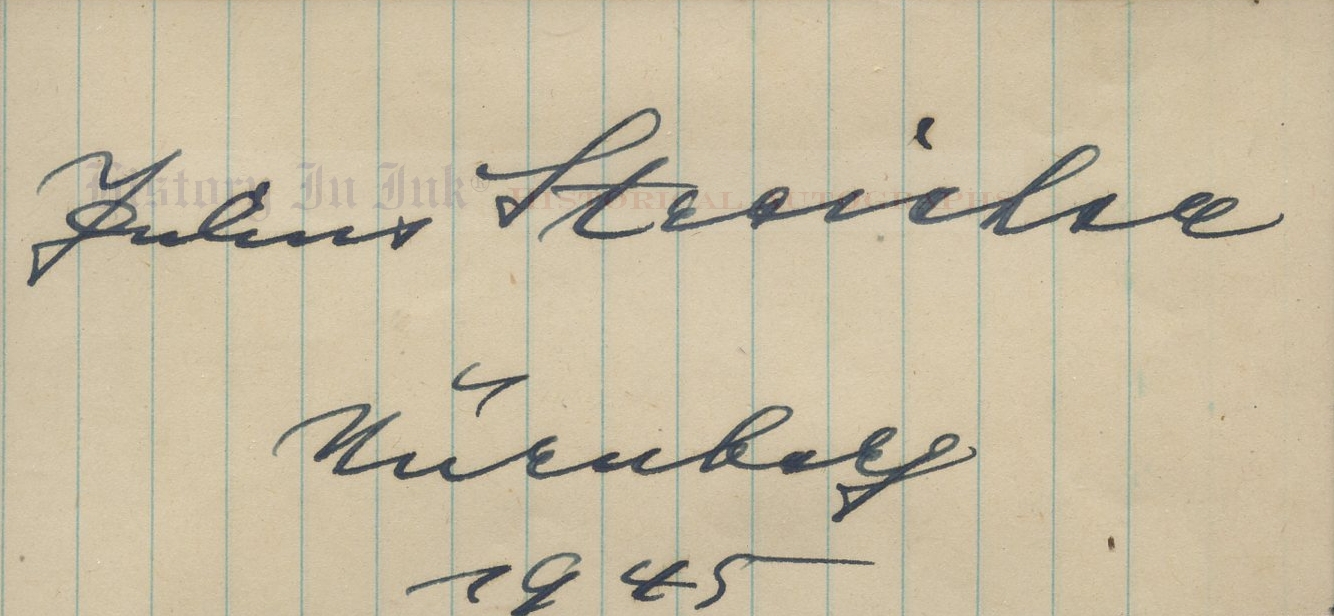 Julius Streicher
History In Ink® HISTORICAL AUTOGRAPHS
Nürnberg
1945